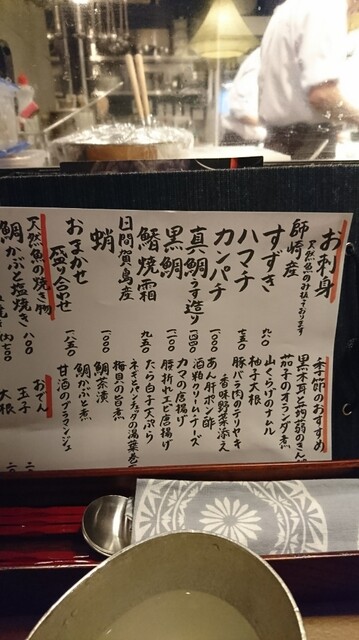 お刺身
天然魚のみ取り扱っております
師崎産
すずき 九〇〇
ハマチ
カンパチ 七五〇
真鯛うす造り 一〇〇〇
黒鯛 一〇〇〇
鰆焼霜 九五〇
日間賀島産
蛸 一〇〇〇
おまかせ
盛り合わせ 一八五〇
天然魚の焼き物
鯛かぶと塩焼き 八〇〇
季節のおすすめ
黒木耳と蒟蒻のきん
茄子のオランダ煮
山くらげのナムル
柚子大根
豚バラ肉のテリヤキ
香味野菜添え
あん肝ポン酢
酒粕クリームチーズ
カワハギの唐揚げ
腰折れエビ唐揚げ
たら白子天ぷら
ネギとパンチェッタの湯葉巻
梅貝の旨煮
鯛茶漬
鯛かぶと煮
甘酒のブラマンジェ
おでん
玉子
大根